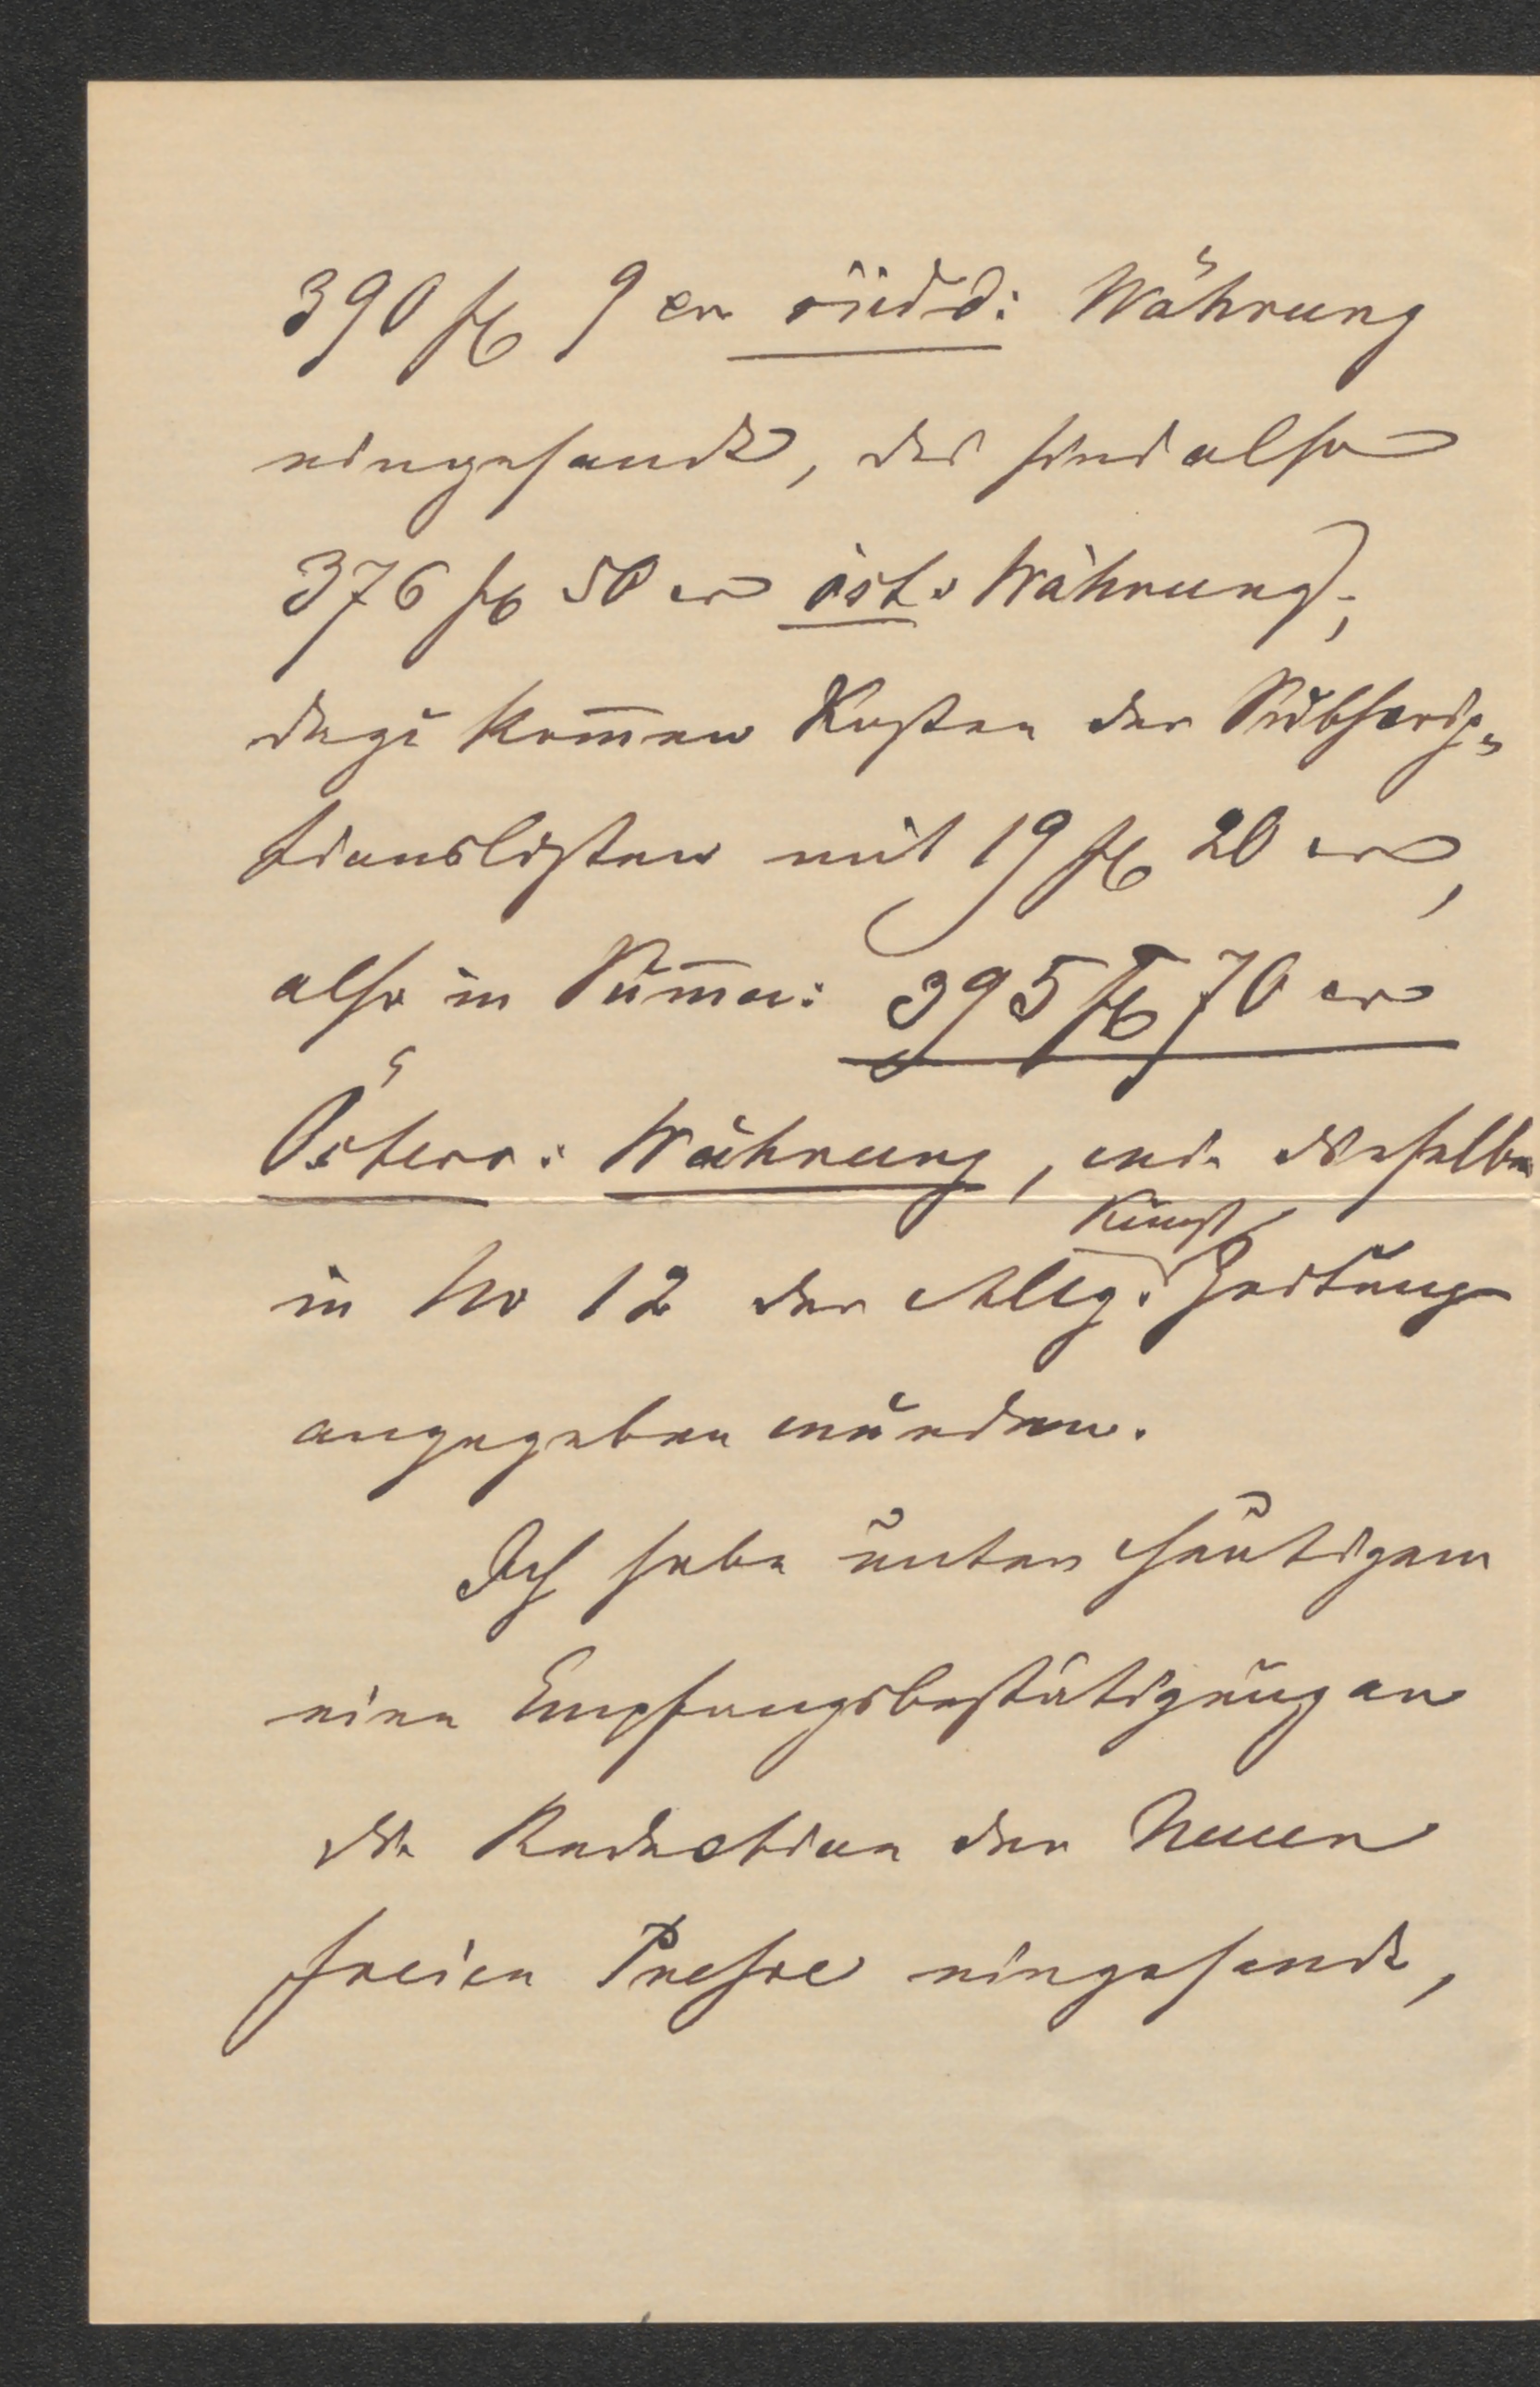 390 fl 9 xr südd: Währung
eingesandt, das sind also
376 fl 50 xr öst. Währung;
dazu kom̅en Kosten der Subscrip=
tionslisten mit 19 fl 20 xr,
also in Sum̅a: 395 fl 70 xr
Österr: Währung, wie dieselben
Kunst
in No 12 der Allg. Zeitung
angegeben wurden.
Ich habe unter heutigem
eine Empfangsbestätigung an
die Redaction der Neuen
freien Presse eingesandt,